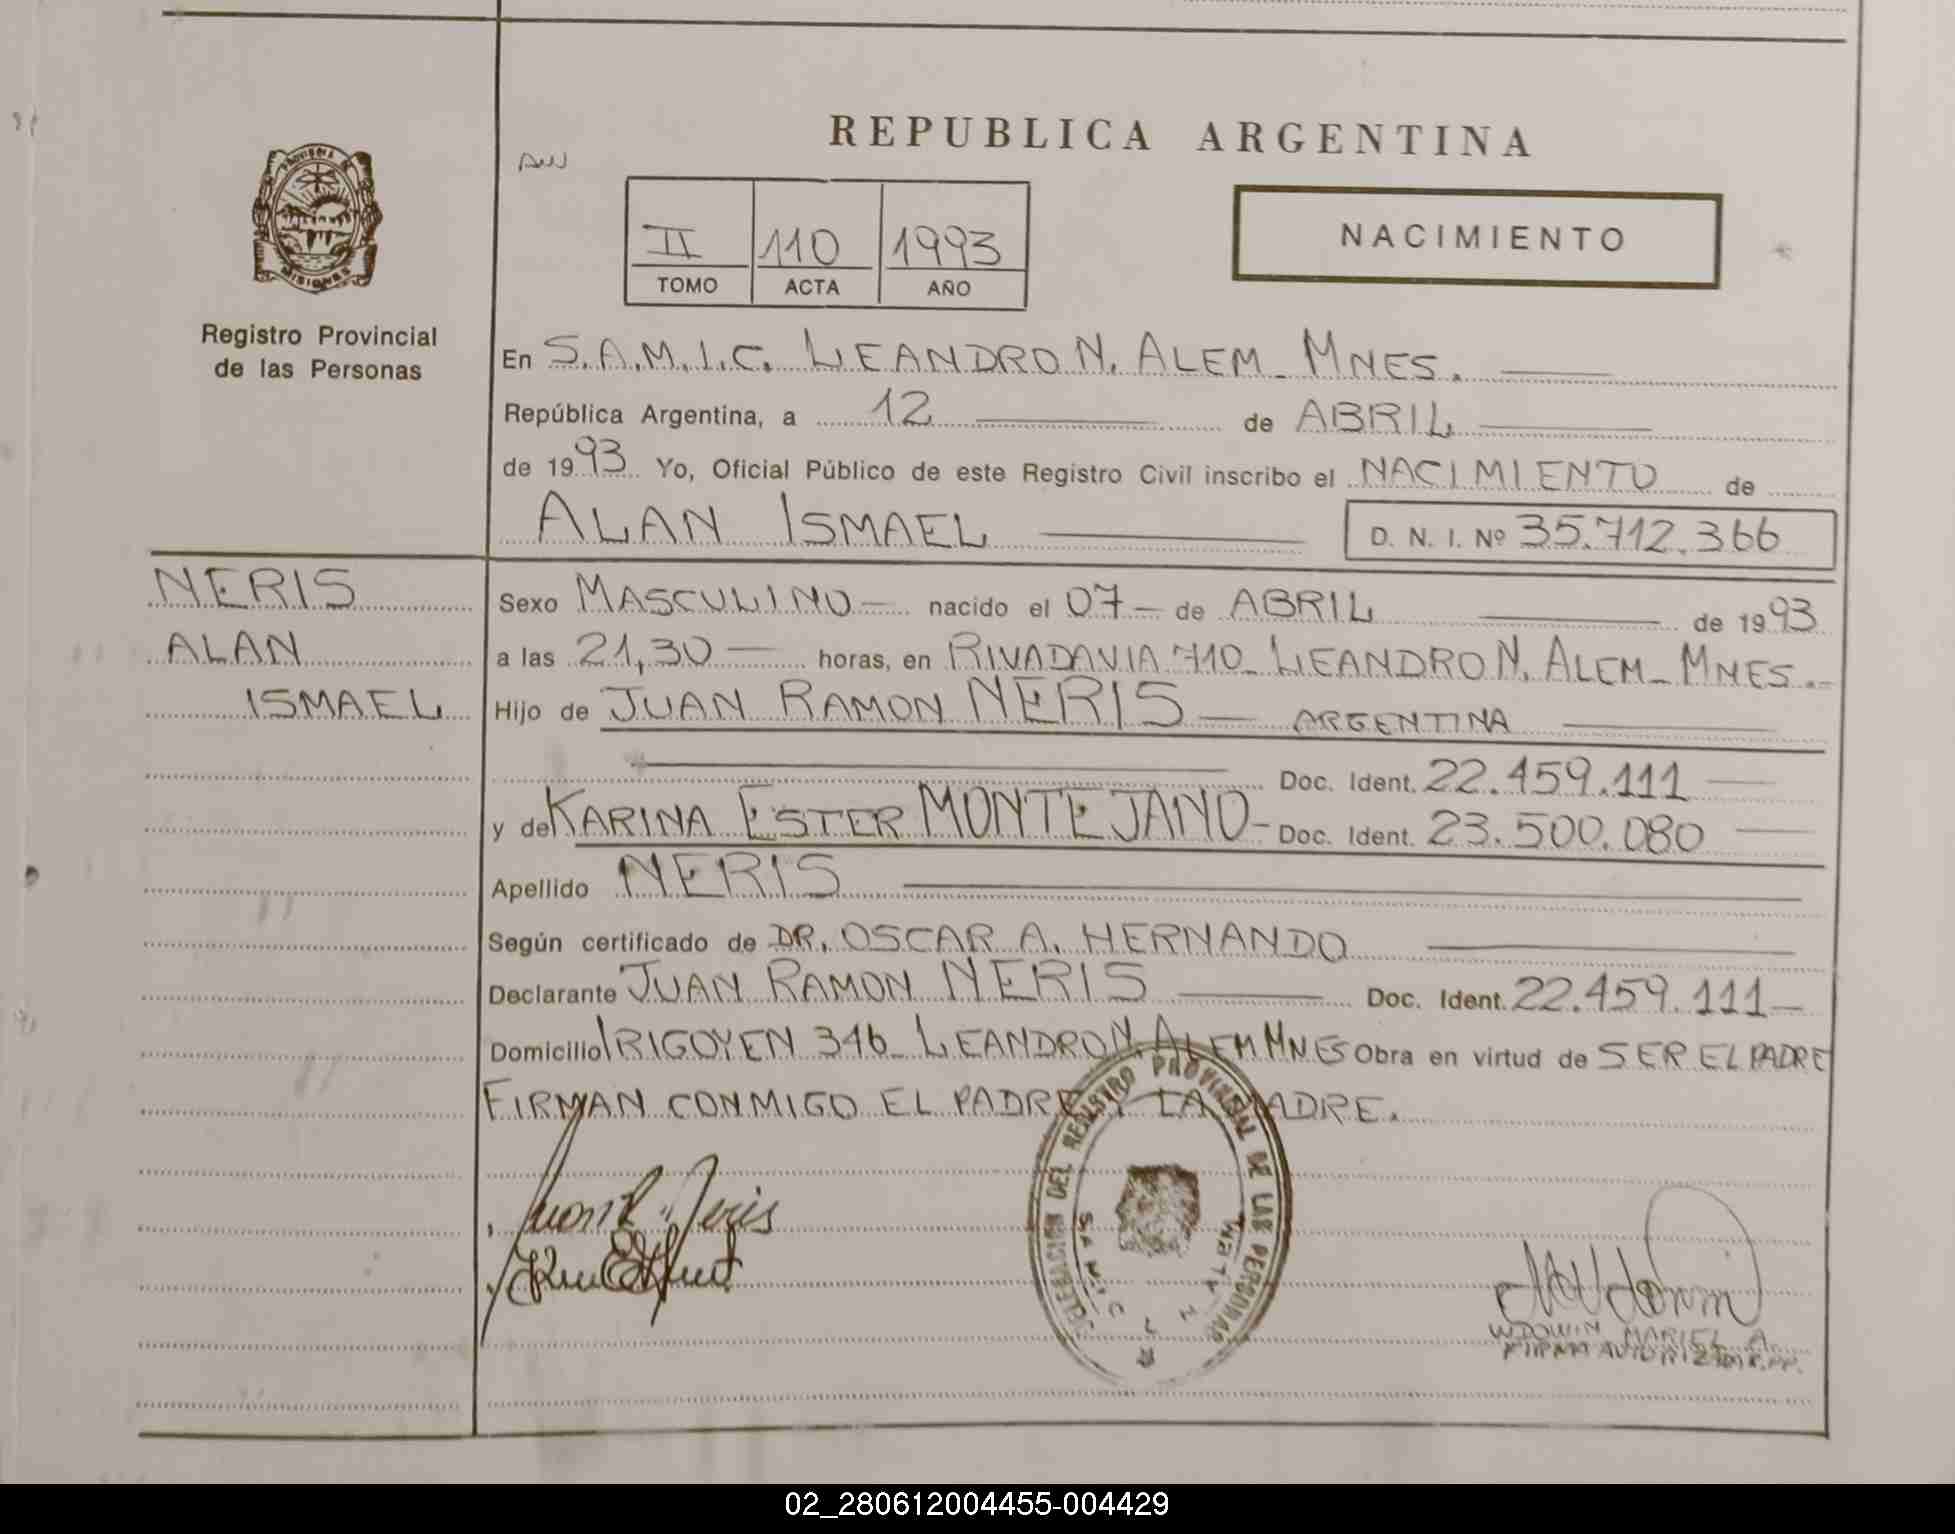 REPUBLICA ARGENTINA
PROVINCIA DE
MISIONES
Registro Provincial
de las Personas
II 110 1993
TOMO ACTA AÑO
NACIMIENTO
En S.A.M.I.C. LEANDRO N. ALEM - MNES.
República Argentina, a 12 de ABRIL
de 1993 Yo, Oficial Público de este Registro Civil inscribo el NACIMIENTO de
ALAN ISMAEL D. N. I. Nº 35.712.366
NERIS
ALAN
ISMAEL
Sexo MASCULINO nacido el 07 de ABRIL de 1993
a las 21,30 horas, en RIVADAVIA 710 - LEANDRO N. ALEM - MNES.
Hijo de JUAN RAMON NERIS - ARGENTINA
Doc. Ident. 22.459.111
y de KARINA ESTER MONTEJANO - Doc. Ident. 23.500.080
Apellido NERIS
Según certificado de DR. OSCAR A. HERNANDO
Declarante JUAN RAMON NERIS Doc. Ident. 22.459.111
Domicilio IRIGOYEN 346 - LEANDRO N. ALEM MNES Obra en virtud de SER EL PADRE
FIRMAN CONMIGO EL PADRE Y LA MADRE.
DELEGACION DEL REGISTRO PROVINCIAL DE LAS PERSONAS
Juan R. Neris
WDOWIN MARIEL A.
FIRMA AUTORIZADA R.PP.
02_280612004455-004429